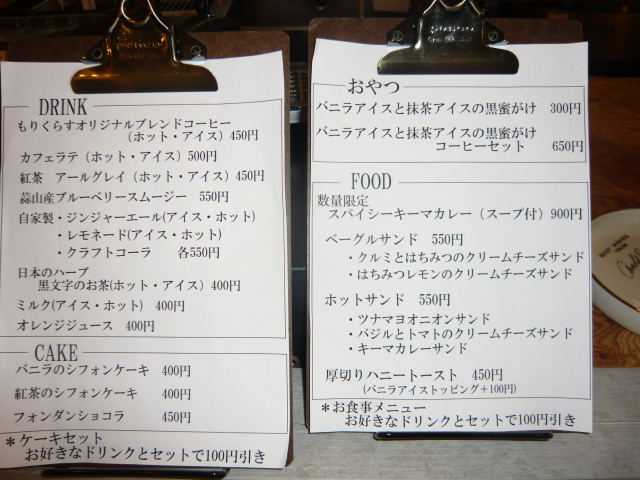 DRINK
もりくらすオリジナルブレンドコーヒー
（ホット・アイス）450円
カフェラテ（ホット・アイス）500円
紅茶　アールグレイ（ホット・アイス）450円
蒜山産ブルーベリースムージー　550円
自家製・ジンジャーエール(アイス・ホット)
・レモネード(アイス・ホット)
・クラフトコーラ　　各550円
日本のハーブ
黒文字のお茶(ホット・アイス）400円
ミルク(アイス・ホット)　400円
オレンジジュース　400円
CAKE
バニラのシフォンケーキ　400円
紅茶のシフォンケーキ　400円
フォンダンショコラ　450円
＊ケーキセット
お好きなドリンクとセットで100円引き
おやつ
バニラアイスと抹茶アイスの黒蜜がけ　300円
バニラアイスと抹茶アイスの黒蜜がけ
コーヒーセット　650円
FOOD
数量限定
スパイシーキーマカレー（スープ付）900円
ベーグルサンド　550円
・クルミとはちみつのクリームチーズサンド
・はちみつレモンのクリームチーズサンド
ホットサンド　550円
・ツナマヨオニオンサンド
・バジルとトマトのクリームチーズサンド
・キーマカレーサンド
厚切りハニートースト　450円
(バニラアイストッピング＋100円)
＊お食事メニュー
お好きなドリンクとセットで100円引き